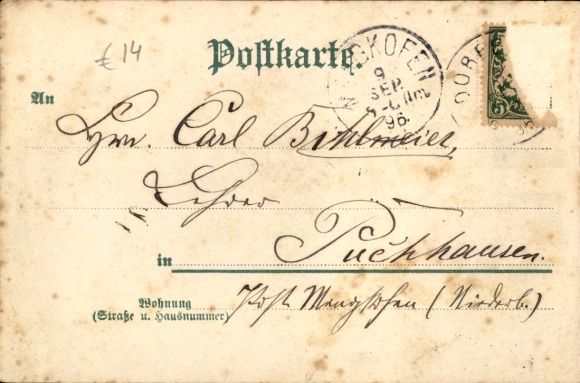 € 14
Postkarte
9
SEP.
96.
5
An
Hrn. Carl Bihlmeier,
Lehrer
in Puchhausen.
Wohnung
(Straße u. Hausnummer)
Post Mengkofen (Niederb.)